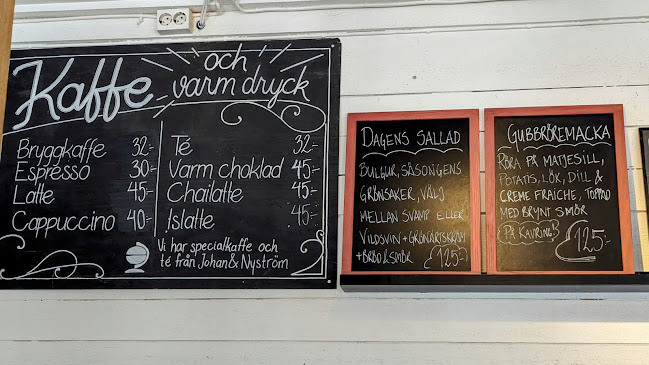 Kaffe och
varm dryck
Bryggkaffe 32-
Espresso 30-
Latte 45-
Cappuccino 40-
Té 32-
Varm choklad 45-
Chailatte 45-
Islatte 45-
Vi har specialkaffe och
té från Johan & Nyström
DAGENS SALLAD
BULGUR, SÄSONGENS
GRÖNSAKER, VÄLJ
MELLAN SVAMP ELLER
VILDSVIN + GRÖNÄRTSKRÄM
+ BRÖD & SMÖR 125:-
GUBBRÖREMACKA
RÖRA PÅ MATJESILL,
POTATIS, LÖK, DILL &
CREME FRAICHE, TOPPAD
MED BRYNT SMÖR
PÅ KAVRING! 125:-